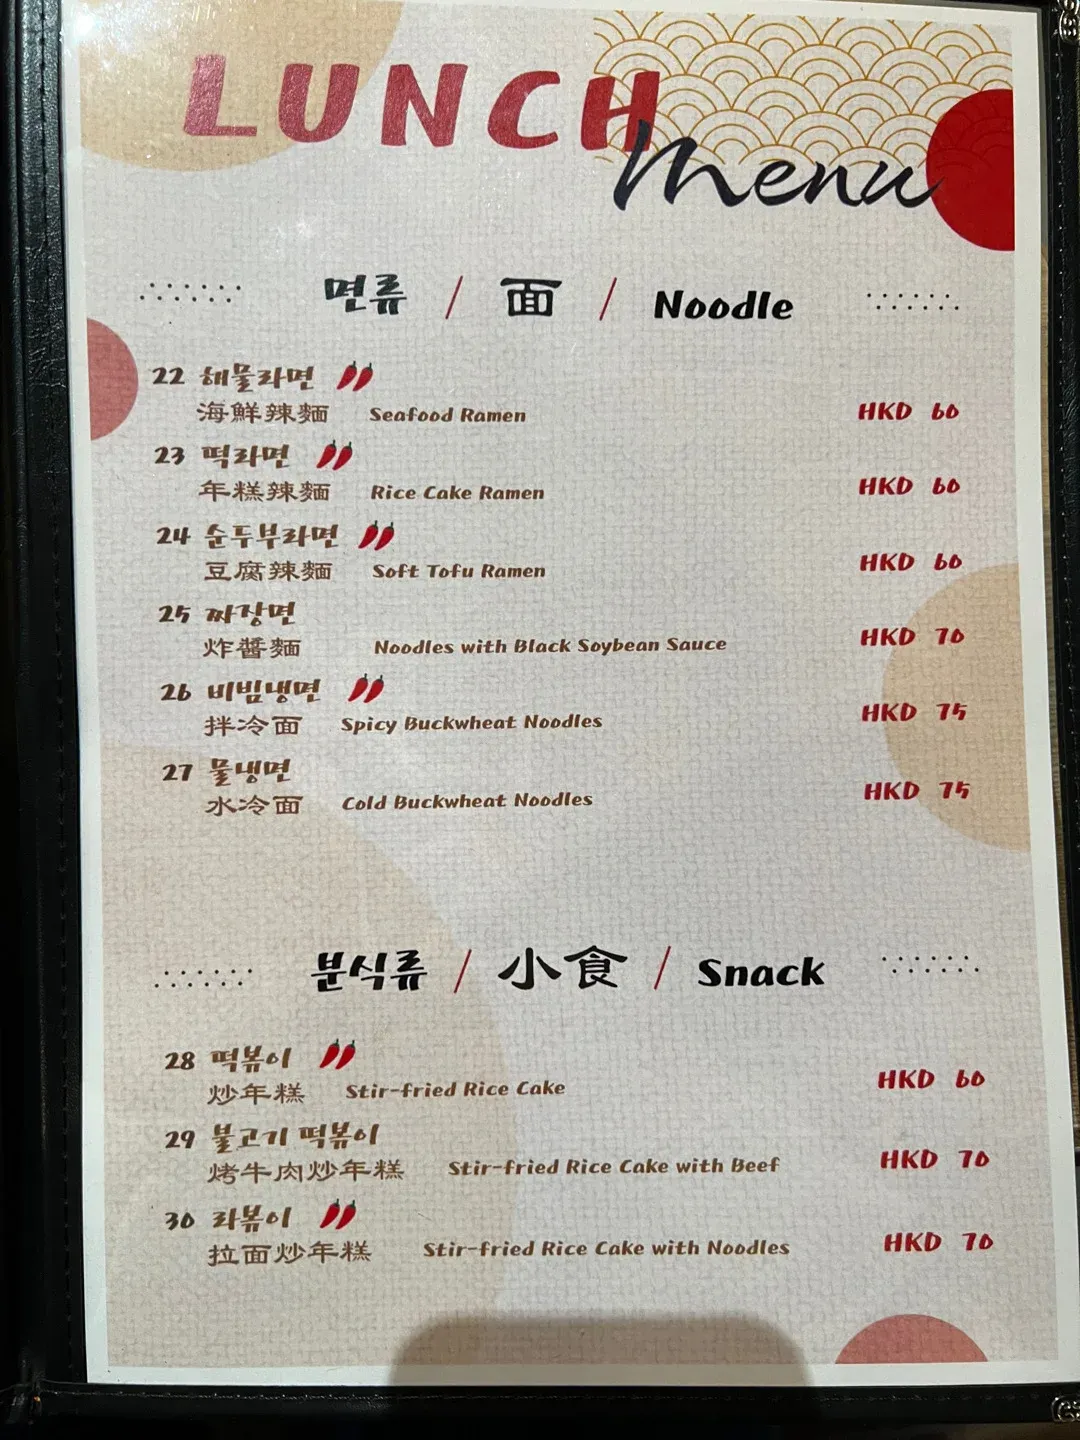 LUNCH
Menu
면류 / 面 / Noodle
22 해물라면
海鮮辣麵 Seafood Ramen HKD 60
23 떡라면
年糕辣麵 Rice Cake Ramen HKD 60
24 순두부라면
豆腐辣麵 Soft Tofu Ramen HKD 60
25 짜장면
炸醬麵 Noodles with Black Soybean Sauce HKD 70
26 비빔냉면
拌冷面 Spicy Buckwheat Noodles HKD 75
27 물냉면
水冷面 Cold Buckwheat Noodles HKD 75
분식류 / 小食 / Snack
28 떡볶이
炒年糕 Stir-fried Rice Cake HKD 60
29 불고기 떡볶이
烤牛肉炒年糕 Stir-fried Rice Cake with Beef HKD 70
30 라볶이
拉面炒年糕 Stir-fried Rice Cake with Noodles HKD 70